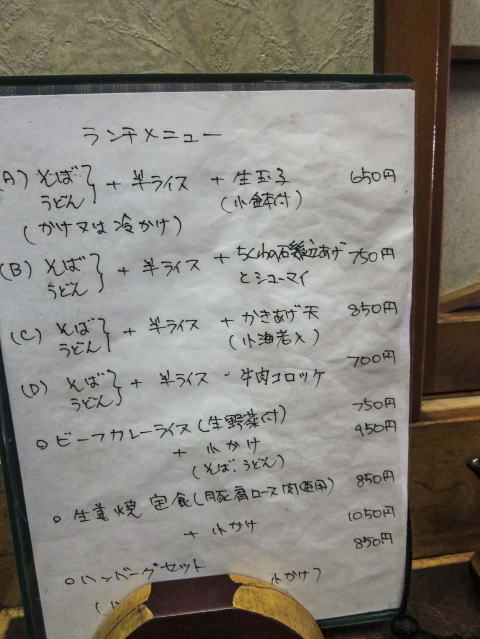 ランチメニュー
(A) そば うどん } + 半ライス + 生玉子 (小鉢付) 650円
(かけ又は冷かけ)
(B) そば うどん } + 半ライス + ちくわの磯辺あげ とシューマイ 750円
(C) そば うどん } + 半ライス + かきあげ天 (小海老入) 850円
(D) そば うどん } + 半ライス - 牛肉コロッケ 700円
○ ビーフカレーライス (生野菜付) 750円
+ 小かけ 950円
(そば、うどん)
○ 生姜焼定食 (豚肩ロース肉使用) 850円
+ 小かけ 1050円
○ ハンバーグセット 850円
小かけ)